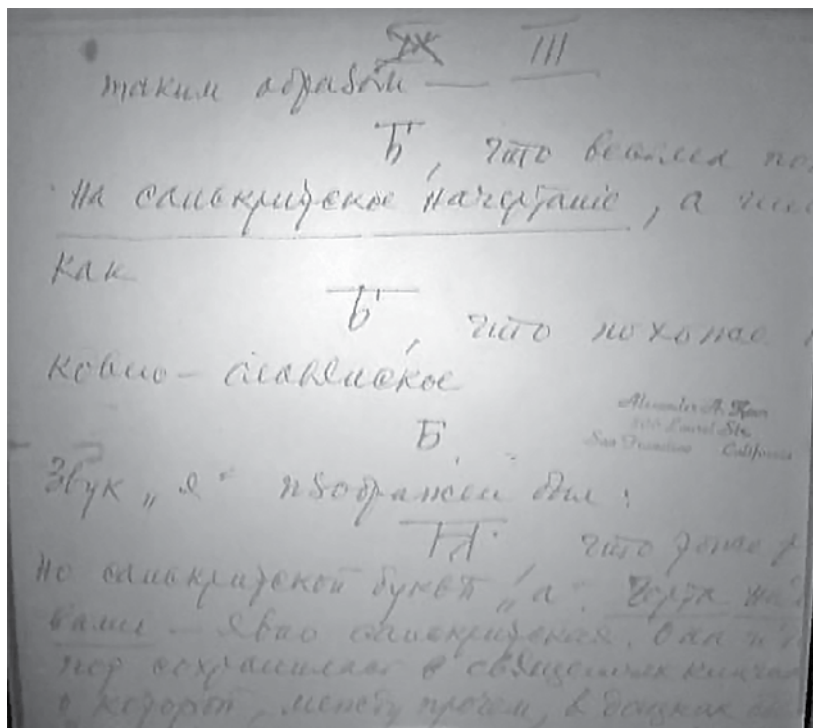 III
таким образом —
Б, что весьма
на санскритское начертанiе, а
как
Б, что похоже
ковно-славянское
Alexander A.
Laurel Str.
San Francisco California
Б.
Звук „я“ изображен был:
что тоже
но санскритской букве „а“. Черта на
вами — явно санскритская. Она
пор сохранилась в священных книгах
о которой, между прочем, в дощках